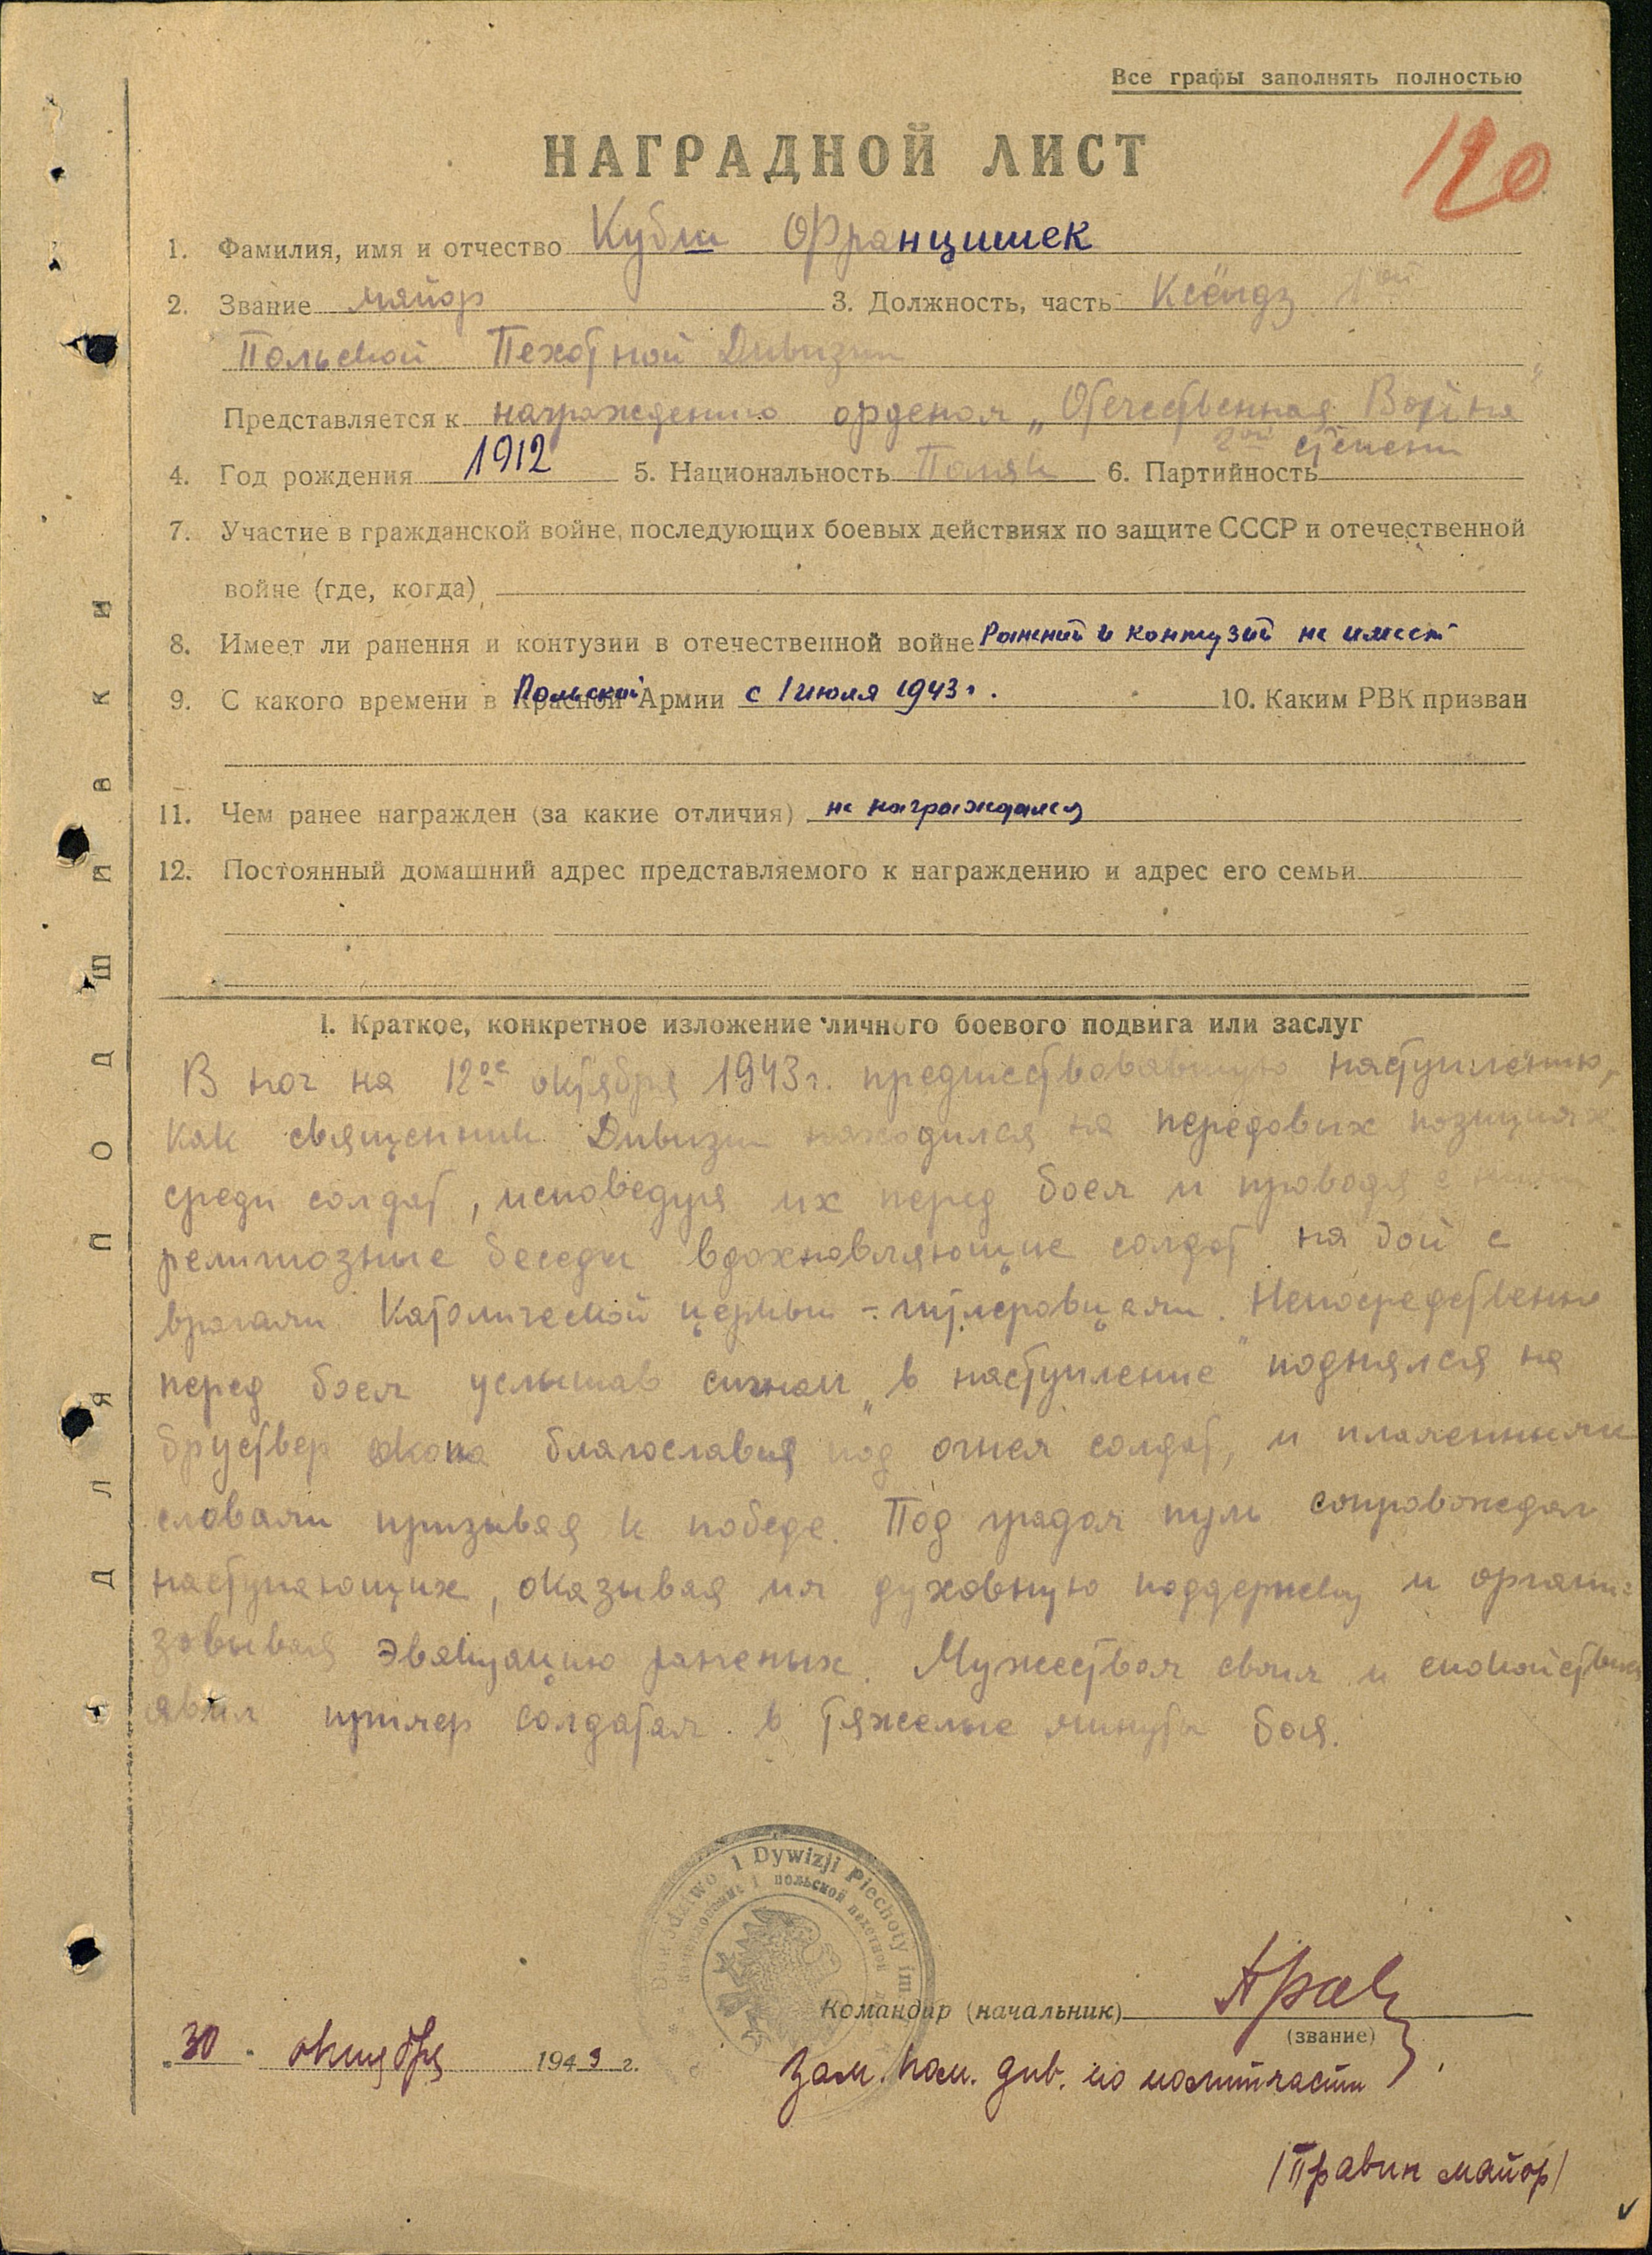 Все графы заполнять полностью
120
НАГРАДНОЙ ЛИСТ
1. Фамилия, имя и отчество Кубш Францишек
2. Звание майор 3. Должность, часть Ксёндз 1ой
Польской Пехотной Дивизии
Представляется к награждению орденом „Отечественная Война"
2ой степени
4. Год рождения 1912 5. Национальность Поляк 6. Партийность
7. Участие в гражданской войне, последующих боевых действиях по защите СССР и отечественной
войне (где, когда)
8. Имеет ли ранення и контузии в отечественной войне Ранений и контузий не имеет
9. С какого времени в Красной Польской Армии с 1 июля 1943 г. 10. Каким РВК призван
11. Чем ранее награжден (за какие отличия) не награждался
12. Постоянный домашний адрес представляемого к награждению и адрес его семьи
I. Краткое, конкретное изложение личного боевого подвига или заслуг
В ноч на 12ое октября 1943 г. предшествовавшую наступлению,
как священник Дивизии находился на передовых позициях
среди солдат, исповедуя их перед боем и проводя с ними
религиозные беседы вдохновляющие солдат на бой с
врагами Католической церкви - гитлеровцами. Непосредственно
перед боем услышав сигнал „в наступление" поднялся на
бруствер окопа благославия под огнем солдат, и пламенными
словами призывая к победе. Под градом пуль сопровождал
наступающих, оказывая им духовную поддержку и органи-
зовывая эвакуацию раненых. Мужеством своим и спокойствием
явил пример солдатам в тяжелые минуты боя.
Dowództwo 1 Dywizji Piechoty im.
Командование 1 польской пехотной
Командир (начальник)
(звание)
„30" октября 1943 г.
Зам. ком. див. по политчасти
/Правин майор/
ДЛЯ ПОДШИВКИ